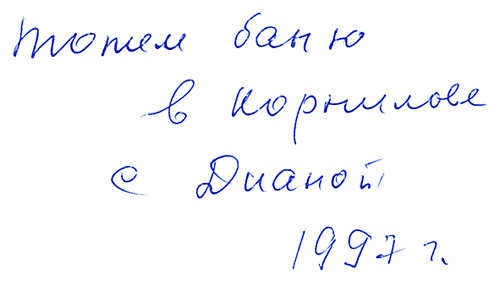 топим баню
в Корнилове
с Дианой
1997 г.